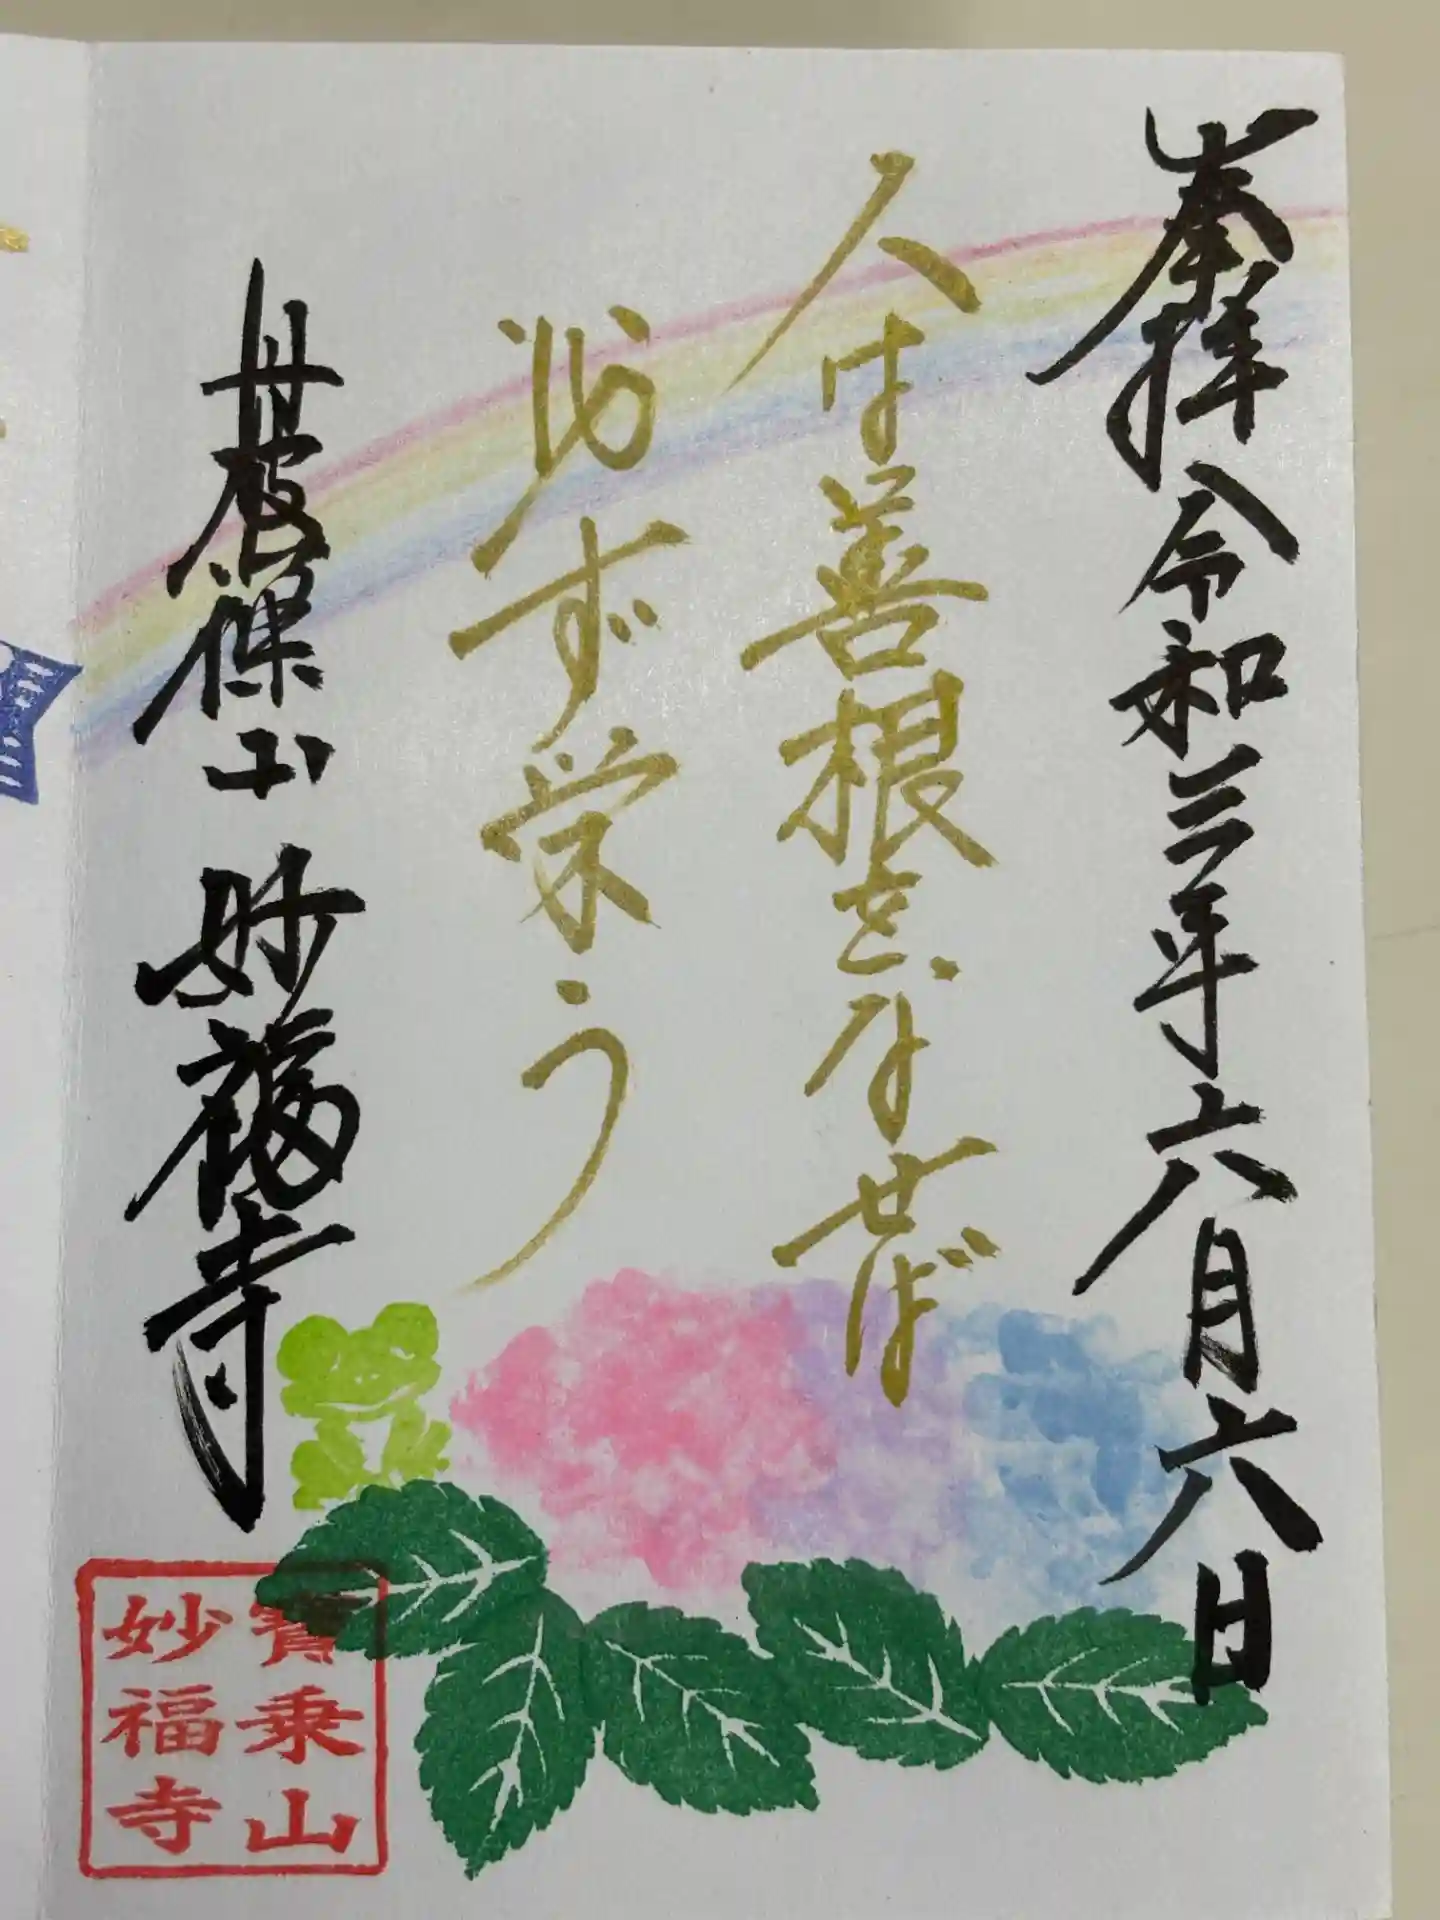 奉拝 令和三年六月六日
人は善根をなせば
必ず栄う
世田谷篠山 妙福寺
寳乗山
妙福寺